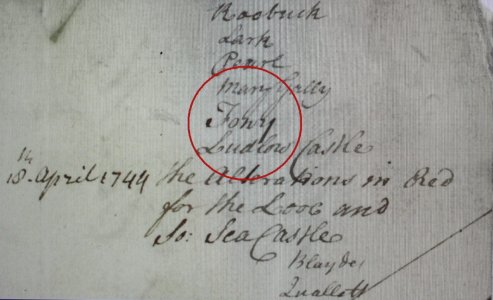 Roobuck
Lark
Pearl
Mary Gally
Fowy
Ludlow Castle
18th April 1744 the Alterations in Red
for the Looe and
So: Sea Castle
Blaydes